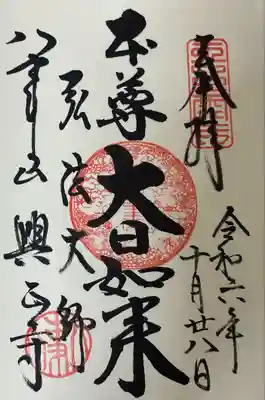 奉拝
令和六年
十月廿八日
本尊大日如来
弘法大師
八事山興正寺